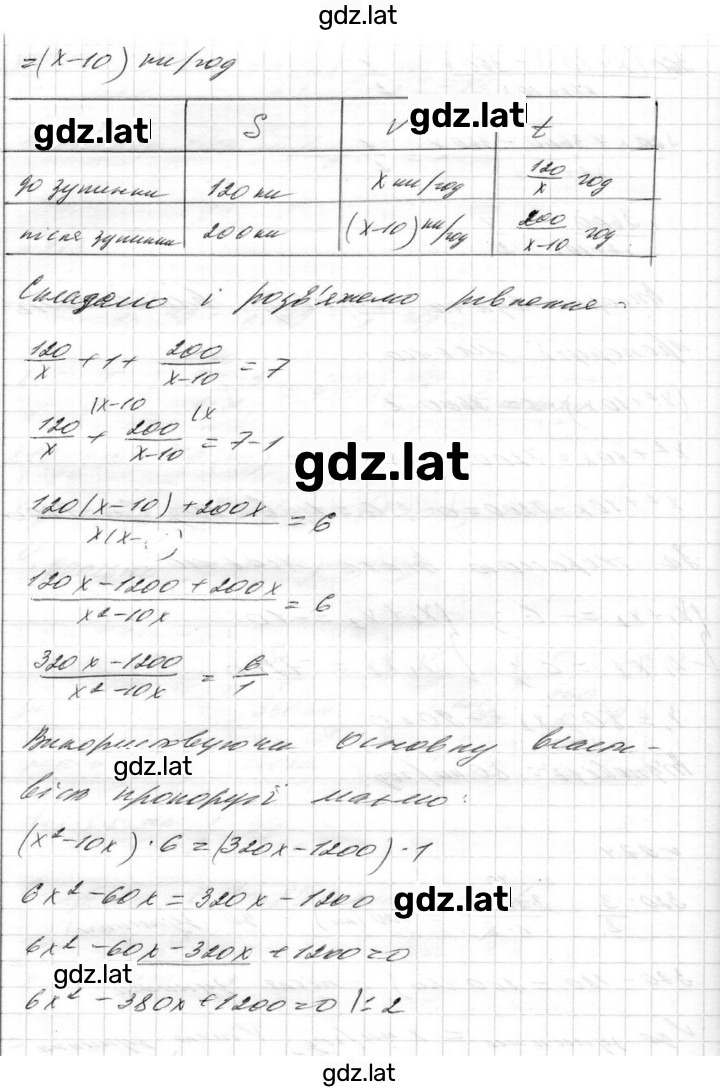 gdz.lat
=(x-10) км/год
gdz.lat S V gdz.lat t
до зупинки 120 км x км/год 120/x год
після зупинки 200 км (x-10) км/год 200/(x-10) год
Складемо і розв'яжемо рівняння:
120/x + 1 + 200/(x-10) = 7
120/x |x-10 + 200/(x-10) |x = 7-1
gdz.lat
(120(x-10)+200x)/(x(x- )) = 6
(120x-1200+200x)/(x²-10x) = 6
(320x-1200)/(x²-10x) = 6/1
Використовуючи основну власти-
gdz.lat
вість пропорції маємо:
(x²-10x)·6=(320x-1200)·1
6x²-60x=320x-1200 gdz.lat
6x²-60x-320x+1200=0
gdz.lat
6x²-380x+1200=0 |:2
gdz.lat